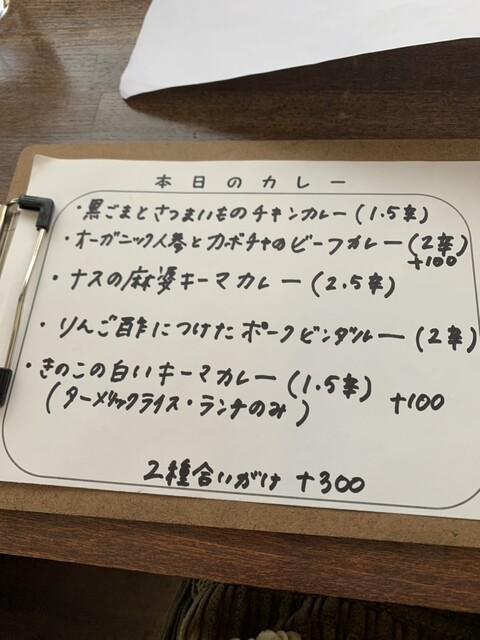 本日のカレー
・黒ごまとさつまいものチキンカレー(1.5辛)
・オーガニック人参とカボチャのビーフカレー(2辛)
+100
・ナスの麻婆キーマカレー(2.5辛)
・りんご酢につけたポークビンダルー(2辛)
・きのこの白いキーマカレー(1.5辛)
(ターメリックライス・ランチのみ) +100
2種合いがけ +300